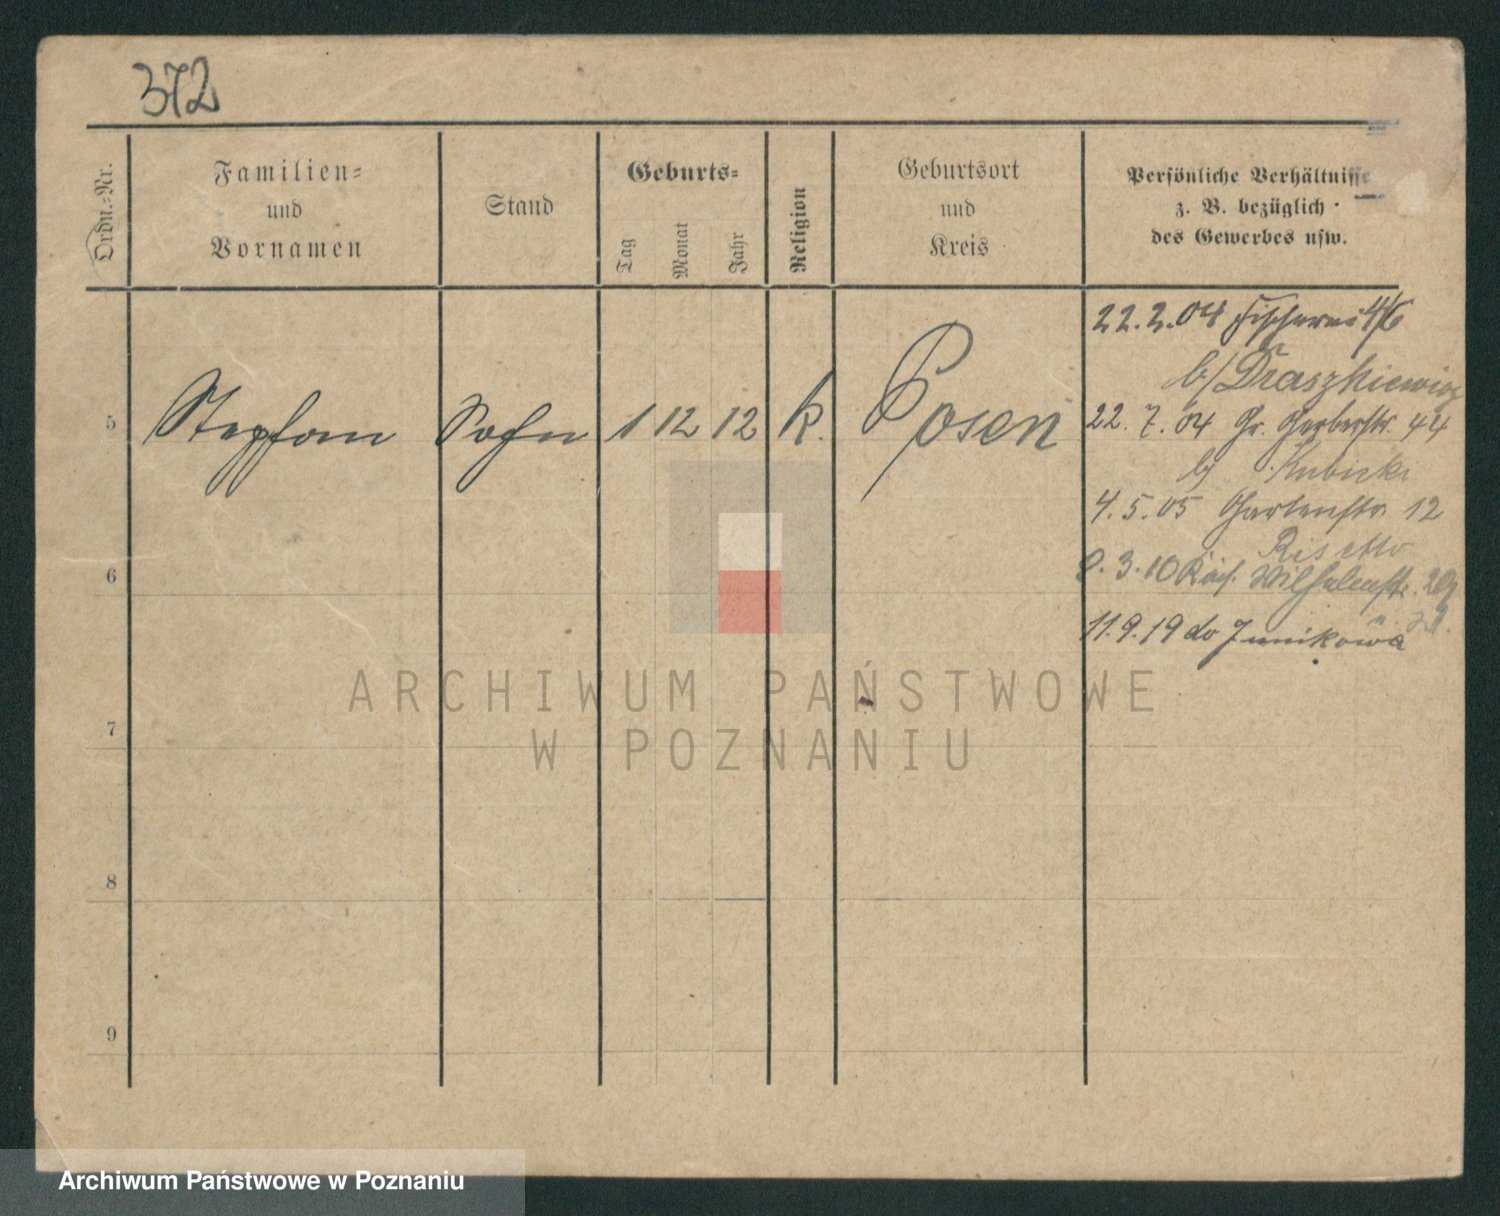 372
Ordn.-Nr.
Familien-
und
Vornamen
Stand
Geburts-
Tag
Monat
Jahr
Religion
Geburtsort
und
Kreis
Persönliche Verhältnisse
z. B. bezüglich
des Gewerbes usw.
5
Stephan Sohn 1 12 12 k. Posen
22.2.04 Fischerei 4/6
b/ Draszkiewicz
22.7.04 Gr. Gerberstr. 44
b/ Kubicki
4.5.05 Gartenstr 12
8.3.10 Wilhelmstr.
11.9.19 do Junikowa
6
7
8
9
ARCHIWUM PAŃSTWOWE
W POZNANIU
Archiwum Państwowe w Poznaniu